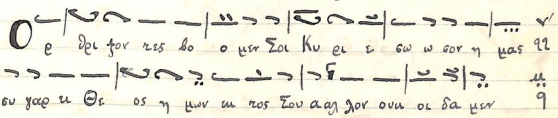 Ορ θρι ζον τες βο ο μεν Σοι Κυ ρι ε σω ω σον η μας
συ γαρ ει Θε ος η μων εκ τος Σου α αλ λον ουκ οι δα μεν